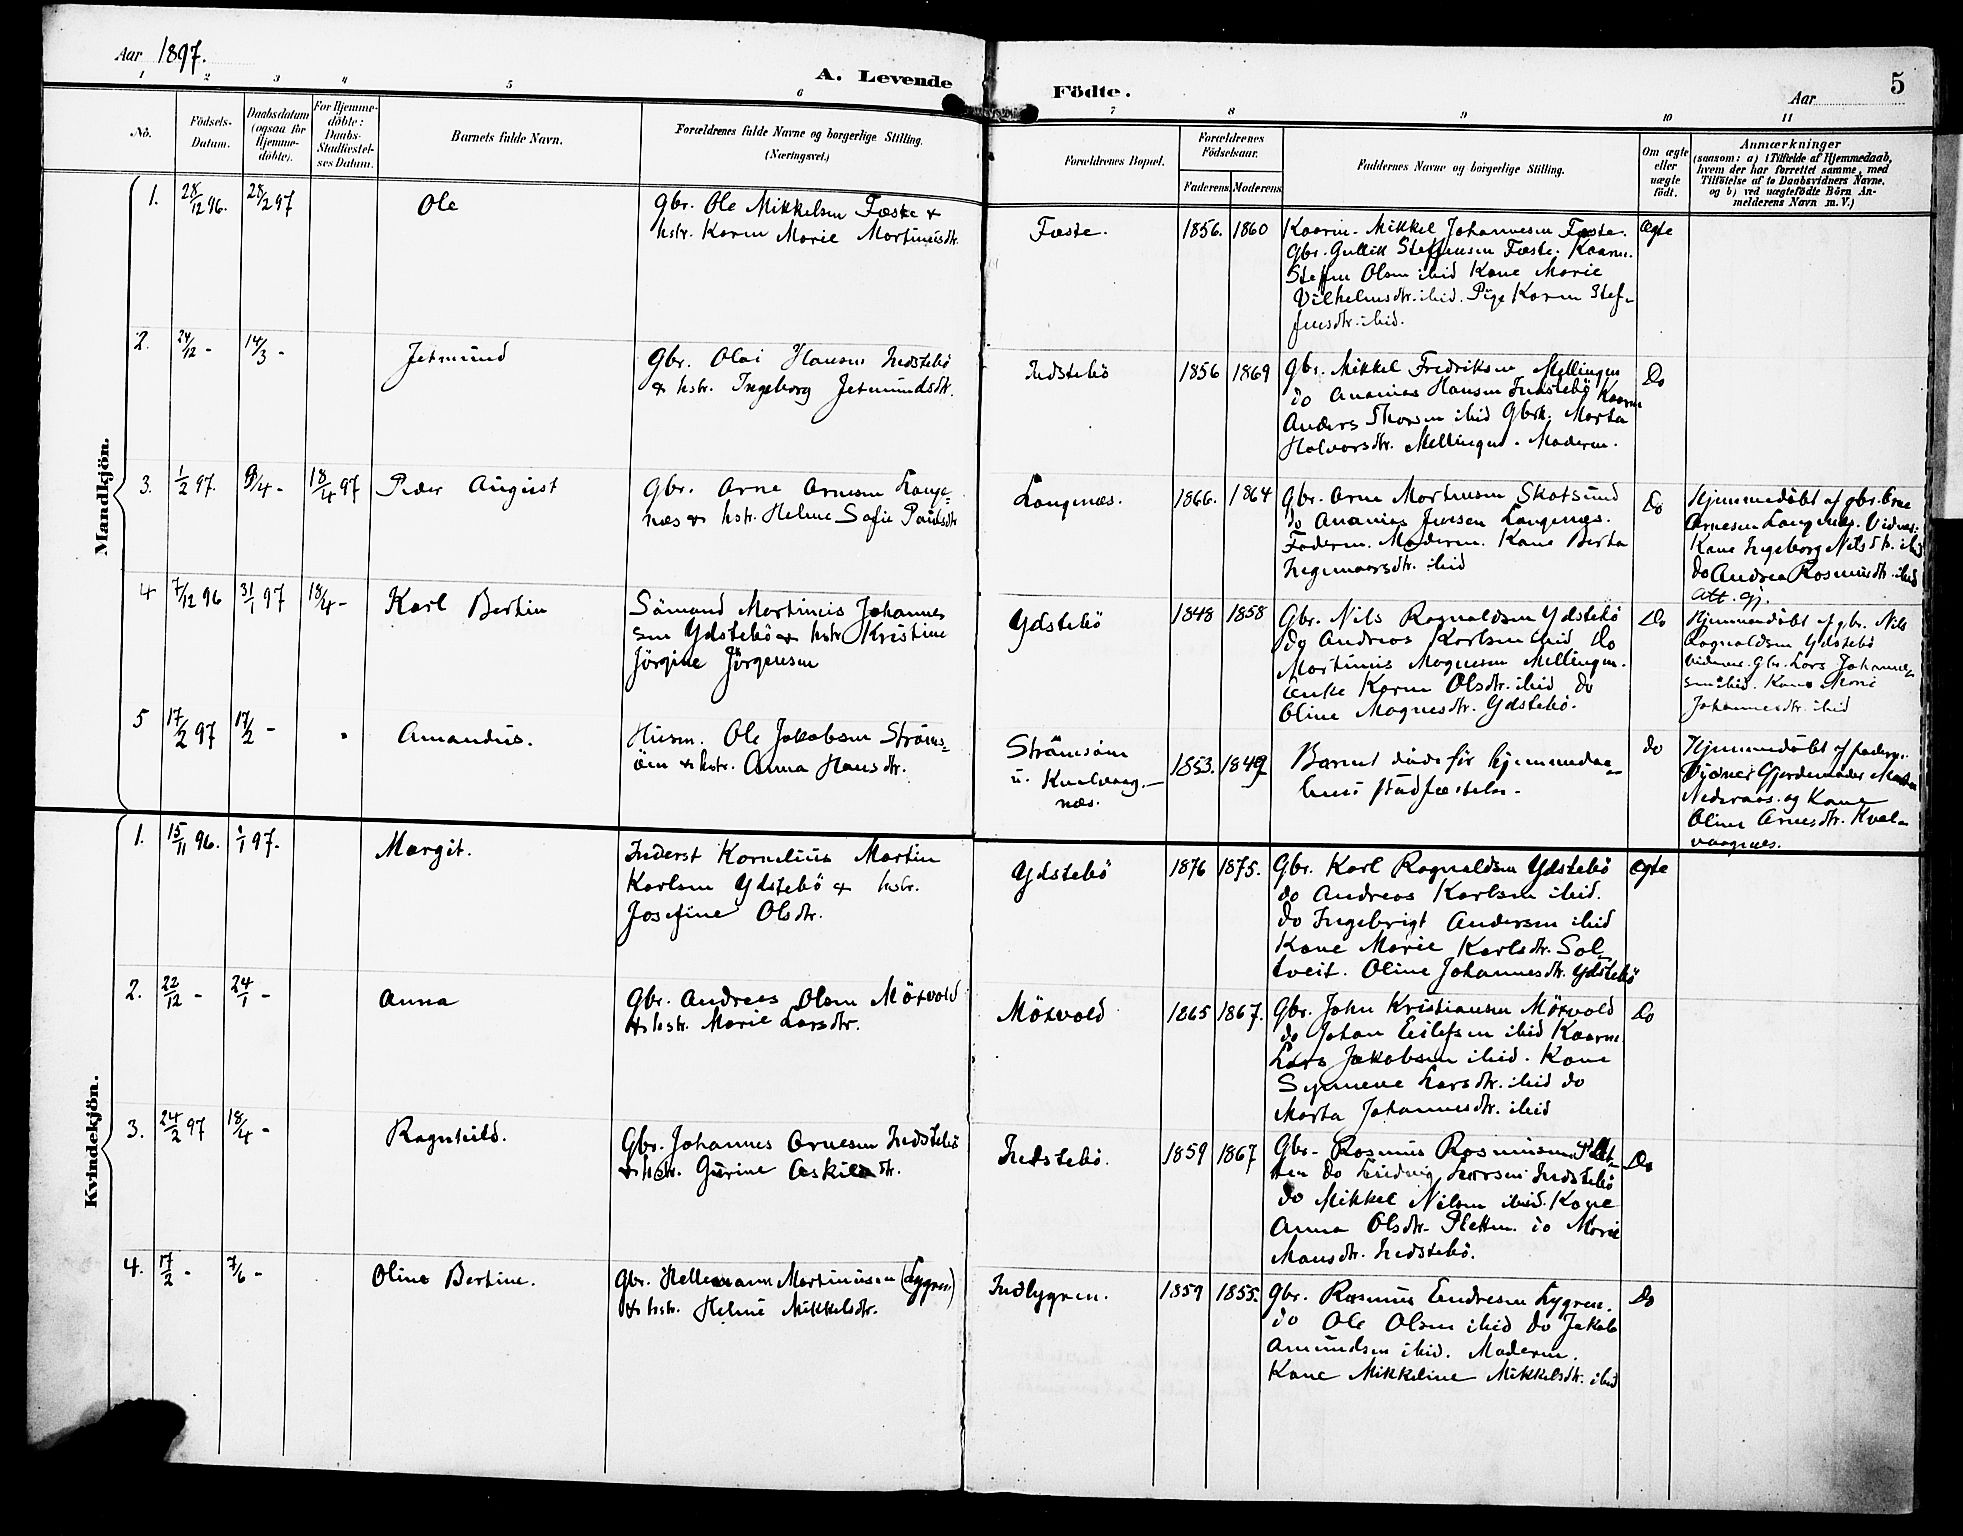 Aar 1897.
A. Levende
Födte.
Aar
5
1
2
3
4
5
6
7
8
9
10
11
No.
Födsels-
Datum.
Daabsdatum
(ogsaa for
Hjemme-
döbte).
For Hjemme-
döbte:
Daabs-
Stadfæstel-
ses Datum.
Barnets fulde Navn.
Forældrenes fulde Navne og borgerlige Stilling.
(Næringsvei.)
Forældrenes Bopæl.
Forældrenes
Födselsaar.
Faderens.
Moderens.
Faddernes Navne og borgerlige Stilling.
Om ægte
eller
uægte
födt.
Anmærkninger
(saasom: a) i Tilfælde af Hjemmedaab,
hvem der har forrettet samme, med
Tilföielse af to Daabsvidners Navne,
og b) ved uægtefödte Börn An-
melderens Navn m. V.)
Mandkjön.
1.
28/12 96.
28/2 97
Ole
Gbr. Ole Mikkelsen Fæste &
hstr. Karen Marie Martinusdtr.
Fæste.
1856.
1860
Kaarm. Mikkel Johannesen Fæste.
Gbr. Gullik Steffensen Fæste. Kaarm.
Steffen Olsen ibid Kone Marie
Vilhelmsdtr. ibid. Pige Karen Stef-
fensdtr. ibid.
ægte
2.
24/12 -
14/3 -
Jetmund
Gbr. Olai Hansen Indstebö
& hstr. Ingeborg Jetmundsdtr.
Indstebö
1856
1869
Gbr. Mikkel Fredriksen Mellingen
do Ananias Hansen Indstebö Kaarm
Anders Thorsen ibid Gbrk. Marta
Halvorsdtr. Mellingen. Moderen.
Do
3.
1/2 97.
9/4 -
18/4 97
Peder August
Gbr. Arne Arnesen Lange-
næs & hstr. Helene Sofie Paulsdtr
Langenæs.
1866.
1864
Gbr. Arne Mortensen Skotsund
do Ananias Jensen Langenæs.
Faderen. Moderen. Kone Berta
Ingemarsdtr. ibid
Do
Hjemmedöbt af gbr. Arne
Arnesen Langenæs. Vidner:
Kone Ingeborg Nilsdtr. ibid
do Andrea Rasmusdtr. ibid
Att. gj.
4
7/12 96
31/1 97
18/4 -
Karl Bertin
Sömand Martinus Johannes
sen Ydstebö & hstr. Kristine
Jörgine Jörgensen
Ydstebö
1848
1858
Gbr. Nils Ragnaldsen Ydstebö
do Andreas Karlsen ibid do
Martinus Magnesen Mellingen.
Enke Karen Olsdtr. ibid do
Oline Magnesdtr. Ydstebö.
Do
Hjemmedöbt af gbr. Nils
Ragnaldsen Ydstebö
Vidner. Gbr. Lars Johannes-
sen ibid. Kone Marie
Johannesdtr. ibid
5
17/2 97
17/2 -
Amandus.
Husm. Ole Jakobsen Ströms-
öen & hstr. Anna Hansdtr.
Strömsöen
u. Kvalvaag-
næs.
1853.
1849
Barnet döde för hjemmedaa-
bens stadfæstelse.
do
Hjemmedöbt af faderen.
Vidner Gjordemoder
Nedraas. og Kone
Oline Arnesdtr. Kval-
vaagnæs.
Kvindekjön.
1.
15/11 96.
1/1 97.
Margit.
Inderst Kornelius Martin
Karlsen Ydstebö & hstr.
Josefine Olsdtr.
Ydstebö
1876
1875.
Gbr. Karl Ragnaldsen Ydstebö
do Andreas Karlsen ibid.
do Ingebrigt Andersen ibid
Kone Marie Karlsdtr. Sol-
tveit. Oline Johannesdtr. Ydstebö
ægte
2.
22/12 -
24/1 -
Anna
Gbr. Andreas Olsen Möxvold
& hstr. Marie Larsdtr.
Möxvold
1865
1867.
Gbr. John Kristiansen Möxvold
do Johan Eilefsen ibid Kaarm.
Lars Jakobsen ibid. Kone
Synneve Larsdtr. ibid do
Marta Johannesdtr. ibid
Do
3.
24/2 97
18/4 -
Ragnhild.
Gbr. Johannes Arnesen Indstebö
& hstr. Gurine Askildtr.
Indstebö.
1859
1867
Gbr. Rasmus Rasmussen Plet-
ten do Ludvig Larsen Indstebö
do Mikkel Nilsen ibid. Kone
Anna Olsdtr. Pletten. do Marie
Hansdtr. Indstebö.
Do
4.
17/2 -
7/6 -
Oline Bertine.
Gbr. Hellemann Martinusen (Lygren)
& hstr. Heline Mikkelsdtr.
Indlygren.
1859
1855.
Gbr. Rasmus Endresen Lygren.
do Ole Olsen ibid do Jakob
Amundsen ibid. Moderen.
Kone Mikkeline Mikkelsdtr. ibid
Do